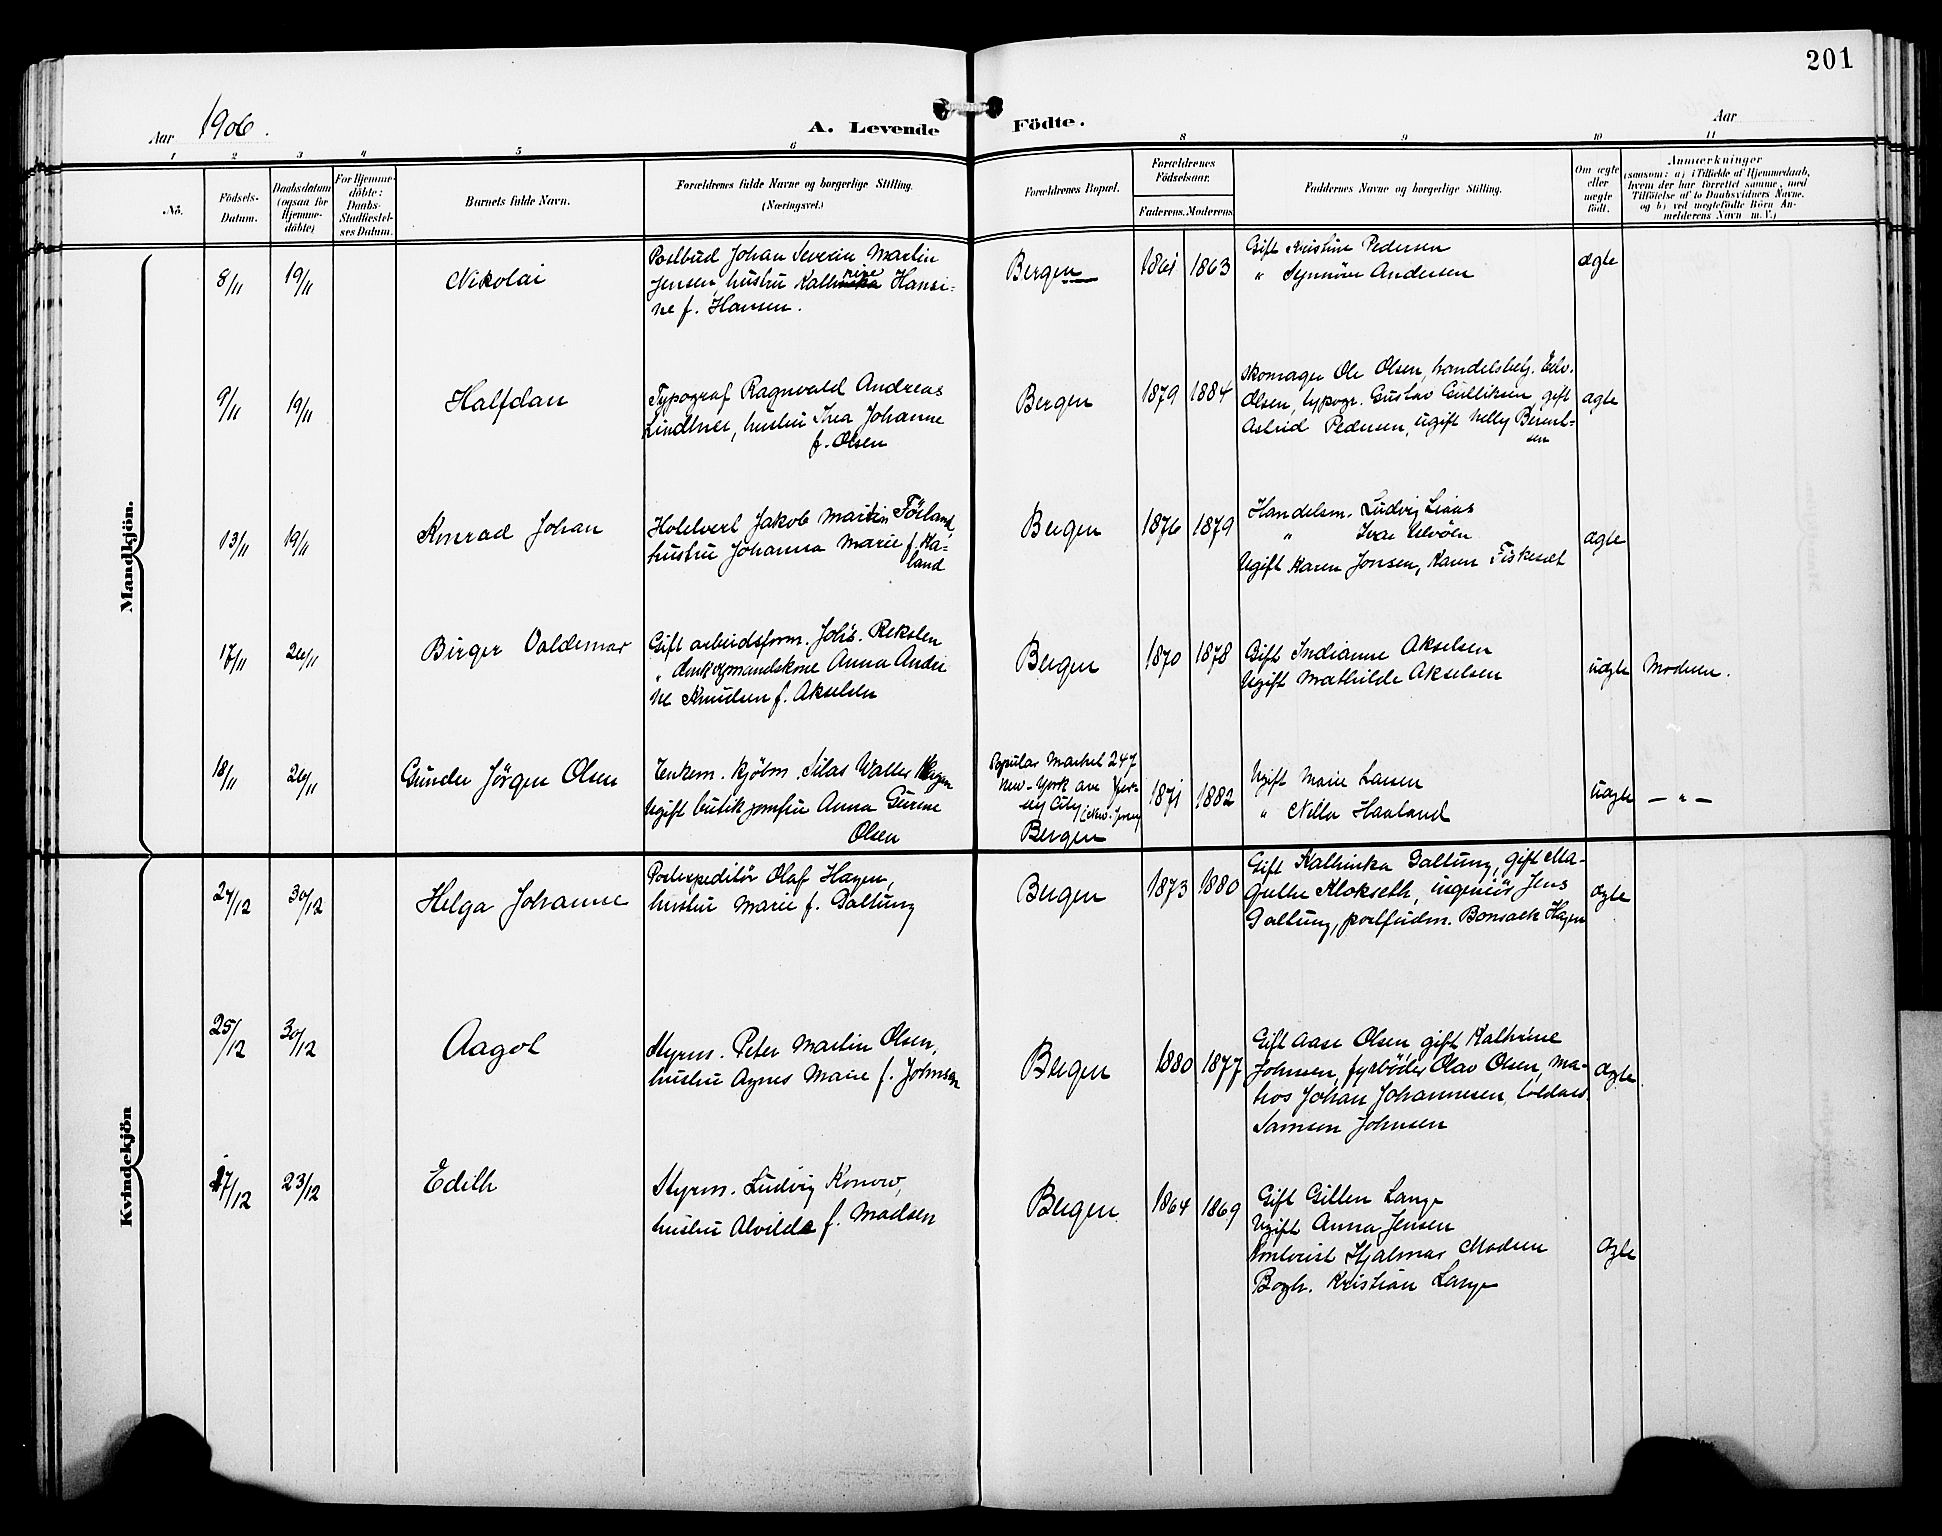 201
Aar 1906.
A. Levende Födte.
Aar
1 2 3 4 5 6 8 9 10 11
No.
Födsels-Datum.
Daabsdatum (ogsaa for Hjemme-döbte)
For Hjemme-döbte: Daabs-Stadfæstel-ses Datum.
Barnets fulde Navn.
Forældrenes fulde Navne og borgerlige Stilling.
(Næringsvei.)
Forældrenes Bopæl.
Forældrenes Födselsaar.
Faderens. Moderens
Faddernes Navne og borgerlige Stilling.
Om ægte eller uægte födt.
Anmærkninger
(saasom: a) i Tilfælde af Hjemmedaab,
hvem der har forrettet samme, med
Tilföielse af to Daabsvidners Navne.
og b) ved uægtefödte Börn An-
melderens Navn m. V.)
Mandkjön.
8/11 19/11 Nikolai
Postbud Johan Severin Martin
Jensen, hustru Kathrine Hansi-
ne f. Hansen.
Bergen 1861 1863
Gift Kristine Pedersen
" Synnöve Andersen
ægte
9/11 19/11 Halfdan
Typograf Ragnvald Andreas
Lindtner, hustru Thea Johanne
f. Olsen
Bergen 1879 1884
Skomager Ole Olsen, handelsbetj. Edv.
Olsen, typogr. Gustav Gulliksen, gift
Astrid Pedersen, ugift Nelly Berent-
sen
ægte
13/11 19/11 Konrad Johan
Hotelvert Jakob Martin Förland,
hustru Johanna Marie f. Ha-
land
Bergen 1876 1879
Handelsm. Ludvig Liaas
" Ivar
Ugift Karen Jensen, Karen Fiskeset
ægte
17/11 26/11 Birger Valdemar
Gift arbeidsform. Johs. Reksten
" Anna Andri
ne Knudsen f. Akselsen
Bergen 1870 1878
Gift Indianne Akselsen
Ugift Mathilde Akselsen
uægte Moderen.
18/11 26/11 Gunder Jörgen Olsen
Enkem. kjöbm. Silas Walter Hagen
Ugift butikjomfru Anna Gurine
Olsen
Popular Market 247
New-York ave Jer-
sey City (New-Jersey
Bergen
1871 1882
Ugift Marie Larsen
" Nella Haaland
uægte — " —
Kvindekjön
24/12 30/12 Helga Johanne
Postexpeditör Olaf Hagen,
hustru Marie f. Galtung
Bergen 1873 1880
Gift Kathinka Galtung, gift Ma-
grethe Klokseth, ingeniör Jens
Galtung, postfuldm. Bonsack Hagen
ægte
25/12 30/12 Aagot
Styrm. Peter Martin Olsen,
hustru Agnes Marie f. Johnsen
Bergen 1880 1877
Gift Aase Olsen, gift Kathrine
Johnsen, fyrböder Olav Olsen, ma-
tros Johan Johannesen,
Samson Johnsen
ægte
17/12 23/12 Edith
Styrm. Ludvig Konow,
hustru Alvilde f. Madsen
Bergen 1864 1869
Gift Gitten Lange
Ugift Anna Jensen
Kontorist Hjalmar Madsen
Bogh. Kristian Lange
ægte